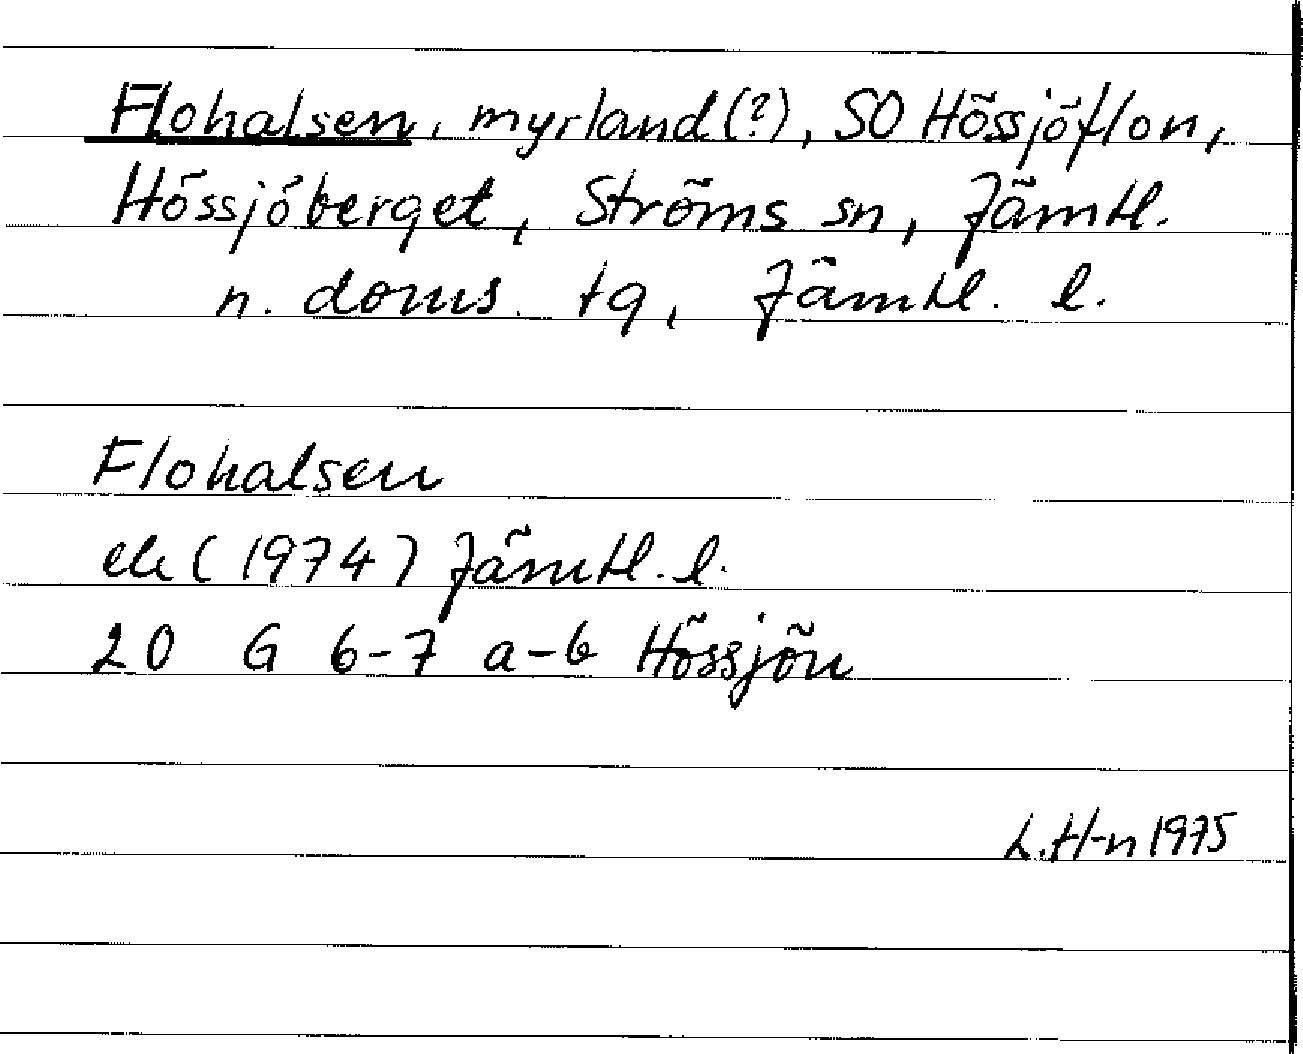 Flohalsen, myrland (?), SO Hössjöflon,
Hössjöberget, Ströms sn, Jämtl.
n. doms. tg, Jämtl. l.
Flohalsen
ek (1974) Jämtl. l.
20 G 6-7 a-b Hössjön
L.H-n 1975